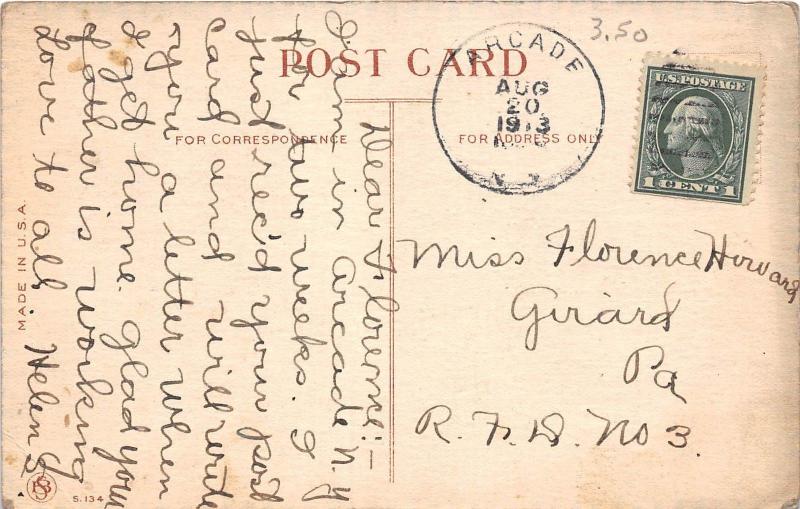 3.50
POST CARD
FOR CORRESPONDENCE
FOR ADDRESS ONLY
ARCADE
AUG
20
1913
N.Y.
U.S. POSTAGE
1 CENT 1
Dear Florence:-
I am in Arcade N.Y
for two weeks. I
just rec'd your post
card and will write
you a letter when
I get home. Glad your
father is working
Love to all. Helen G
Miss Florence Howard
Girard
Pa
R.F.D. No 3.
MADE IN U.S.A.
S. 134